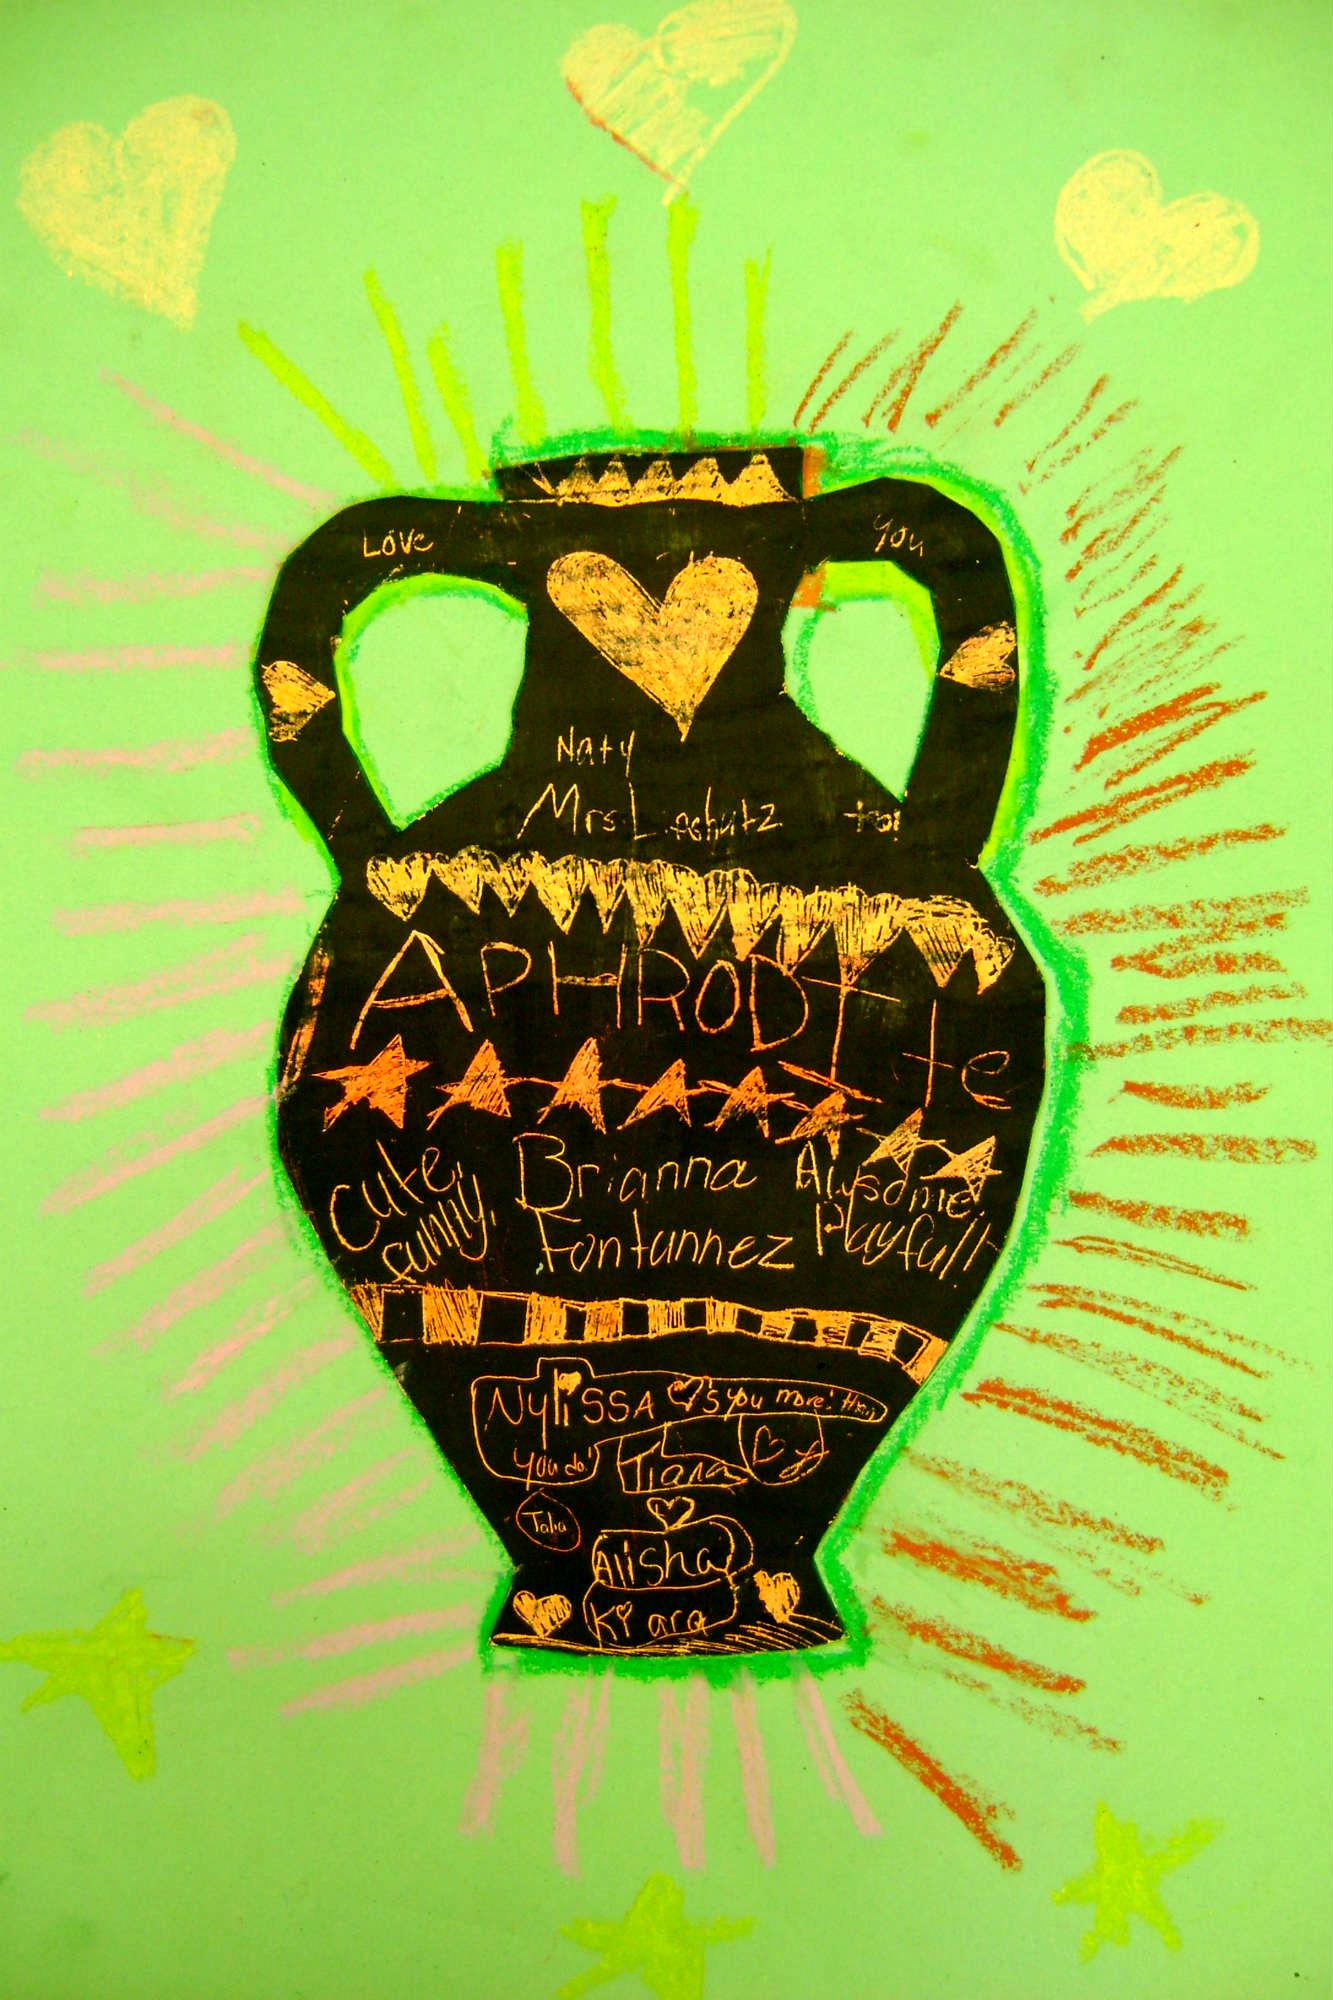 Love You
Naty
Mrs. too!
APHRODITE
Cute, Brianna Awsome!
funny, Fontannez Playful!!
Nylissa 's you more! than
you do!
Tiana
Talia
Alisha
Kiara